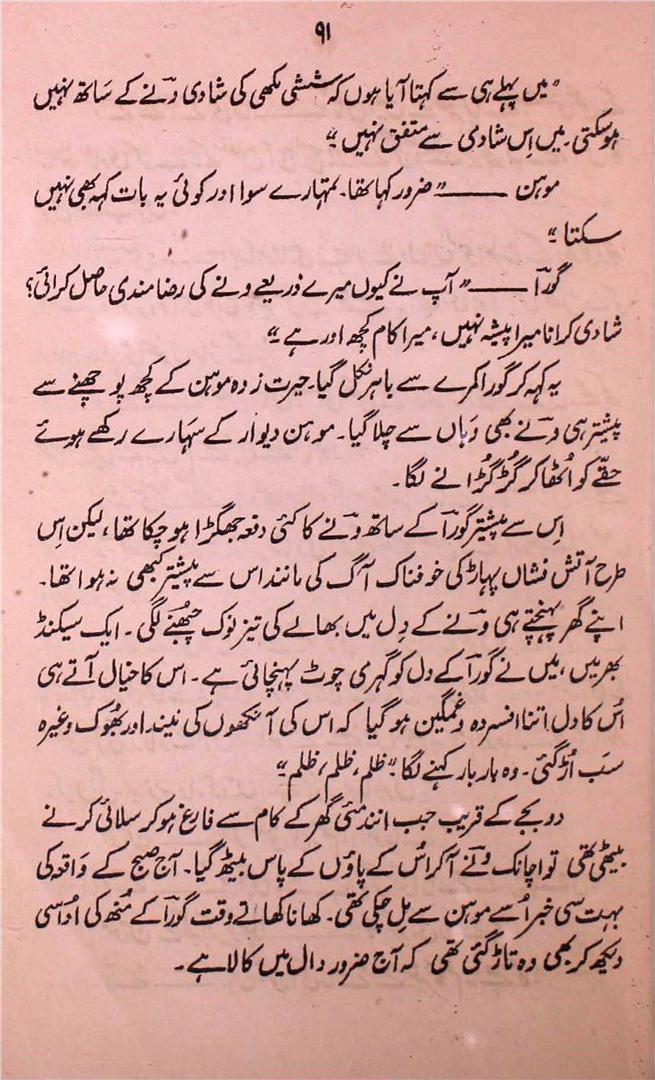 ۹۱
"میں پہلے ہی سے کہتا آیا ہوں کہ ششی مکھی کی شادی ونے کے ساتھ نہیں
ہو سکتی۔ میں اِس شادی سے متفق نہیں"
موہن ——— "ضرور کہا تھا۔ تمہارے سوا اور کوئی یہ بات کہہ بھی نہیں
سکتا"
گورا ——— "آپ نے کیوں میرے ذریعے ونے کی رضا مندی حاصل کرائی؟
شادی کرانا میرا پیشہ نہیں، میرا کام کچھ اور ہے"
یہ کہہ کر گورا کمرے سے باہر نکل گیا۔ حیرت زدہ موہن کے کچھ پوچھنے سے
پیشتر ہی ونے بھی وہاں سے چلا گیا۔ موہن دیوار کے سہارے رکھے ہوئے
حقّے کو اُٹھا کر گُڑگُڑانے لگا۔
اِس سے پیشتر گورا کے ساتھ ونے کا کئی دفعہ جھگڑا ہو چکا تھا، لیکن اِس
طرح آتش فشاں پہاڑ کی خوفناک آگ کی مانند اس سے پیشتر کبھی نہ ہوا تھا۔
اپنے گھر پہنچتے ہی ونے کے دِل میں بھالے کی تیز نوک چبھنے لگی۔ ایک سیکنڈ
بھر میں، میں نے گورا کے دل کو گہری چوٹ پہنچائی ہے۔ اس کا خیال آتے ہی
اُس کا دل اتنا افسردہ و غمگین ہو گیا کہ اس کی آنکھوں کی نیند اور بھُوک وغیرہ
سَب اُڑ گئی۔ وہ بار بار کہنے لگا۔ "ظلم، ظلم، ظلم"
دو بجے کے قریب جب انند مئی گھر کے کام سے فارغ ہو کر سلائی کرنے
بیٹھی تھی تو اچانک ونے آ کر اُس کے پاؤں کے پاس بیٹھ گیا۔ آج صبح کے واقعہ کی
بہت سی خبر اُسے موہن سے مِل چکی تھی۔ کھانا کھاتے وقت گورا کے مُنھ کی اُداسی
دیکھ کر بھی وہ تاڑ گئی تھی کہ آج ضرور دال میں کالا ہے۔